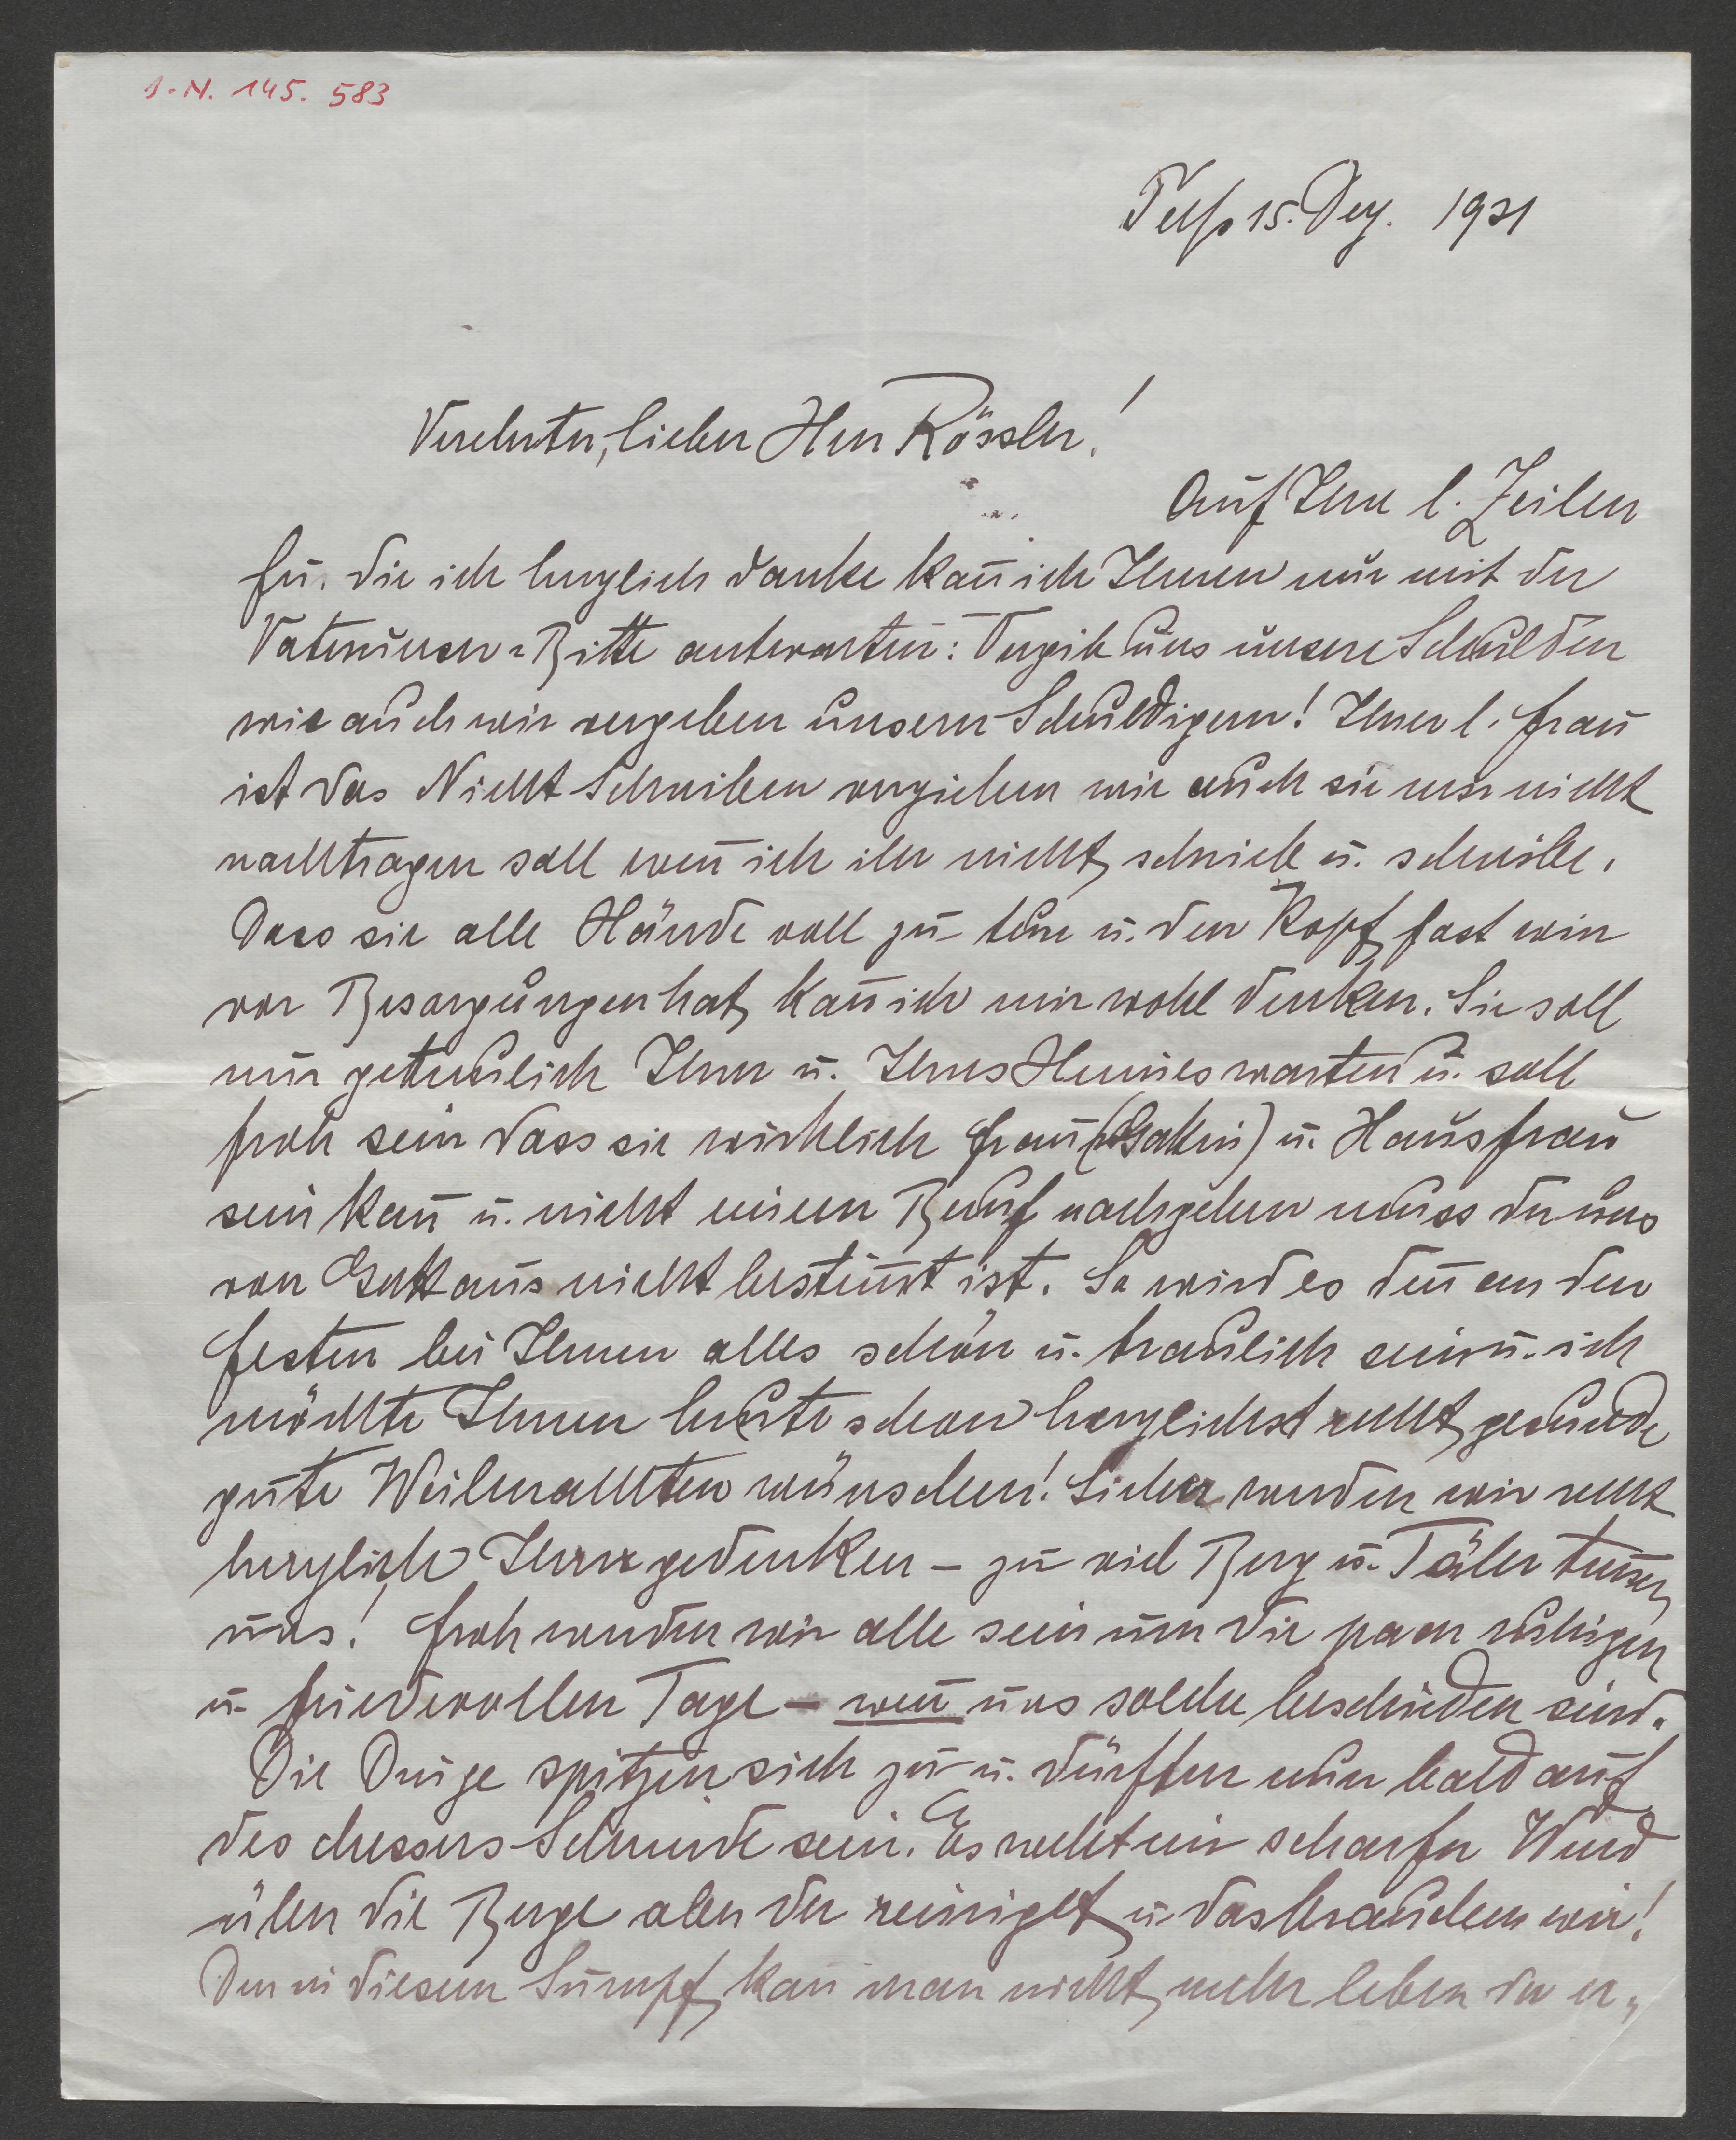 I.N. 145.583
Telfs 15. Dez. 1931
Verehrter, lieber Herr Rössler!
Auf Ihre l. Zeilen
für die ich herzlich danke kan̄ ich Ihnen nur mit der
Vaterunser-Bitte antworten: Vergib uns unsere Schulden
wie auch wir vergeben unsern Schuldigern! Ihrer l. Frau
ist das Nicht Schreiben verziehen wie auch sie mir nicht
nachtragen soll wen̄ ich ihr nicht schrieb u. schreibe.
Dass sie alle Hände voll zu tun u. den Kopf fast wirr
vor Besorgungen hat kan̄ ich mir wohl denken. Sie soll
nur getreulich Ihrer u. Ihres Heimes warten u. soll
froh sein dass sie wirklich Frau (Gattin) u. Hausfrau
sein kan̄ u. nicht einem Beruf nachgehen muss der uns
von Gott aus nicht bestim̄t ist. So wird es den̄ an den
Festen bei Ihnen alles schön u. traulich sein u. ich
möchte Ihnen heute schon herzlichst recht gesunde
gute Weihnachten wünschen! Sicher werden wir recht
herzlich Ihrer gedenken – zu viel Berg u. Täler tren̄en
uns! Froh werden wir alle sein um die paar ruhigen
u. friedevollen Tage – wen̄ uns solche beschieden sind.
Die Dinge spitzen sich zu u. dürften nun bald auf
des Messers Schneide sein. Es weht ein scharfer Wind
über die Berge aber der reiniget u. das brauchen wir!
Den̄ in diesem Sumpf kan̄ man nicht mehr leben da er-